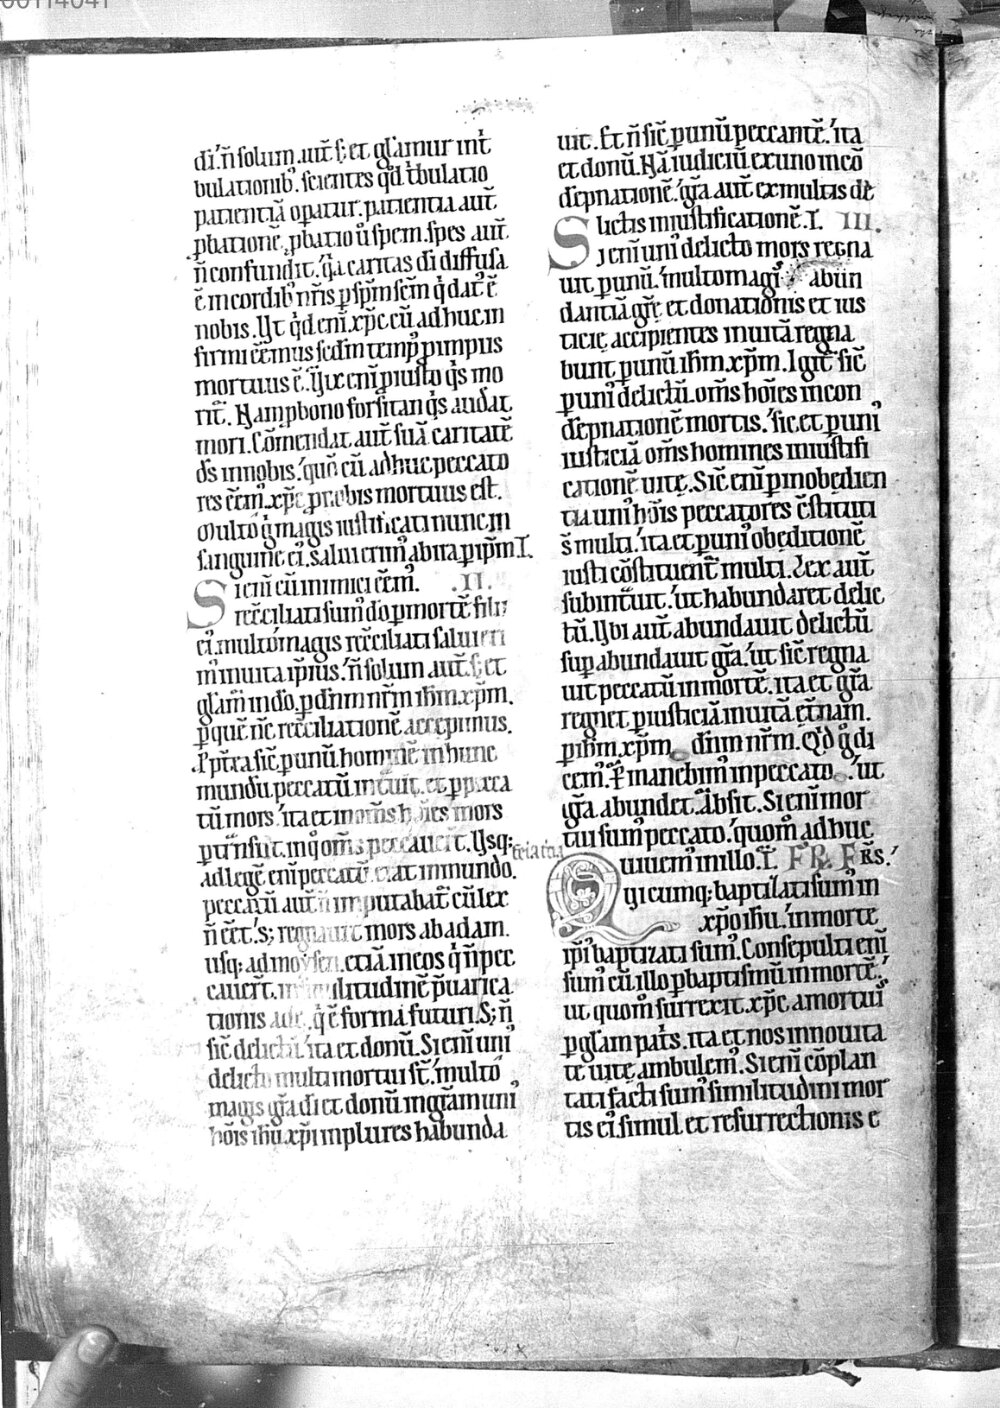 00114041
di. ñ solum. aut̃ s; et gl̃amur int̾
bulationib᷒. scientes qd̾ t̾bulatio
patientiã op̲atur. patientia aut̃
p̲bationẽ. p̲batio ů spem. spes aut̃
ñ confundit. q̾a caritas dĩ diffusa
ẽ in cordib᷒ nr̃is p̲ sp̃m sc̃m q̾ dat᷒ ẽ
nobis. Vt qd̾ enĩ. xp̃c cũ adhuc in
firmi eẽmus scd̾m temp᷒ p̲ impiis
mortuus ẽ. Vix enĩ p̲ iusto q̾s mo
rit̃. Nam p̲ bono forsitan q̾s audat
mori. Cõmendat aut̃ suã caritatẽ
ds̃ in nobis. quõ cũ adhuc peccato
res eẽm᷒. xp̃c p̲ nobis mortuus est.
Multo g̾ magis iustificati nunc in
sanguine ei᷒. salui erim᷒ ab ira p̲ ip̃m I.
Si enĩ cũ inimici eẽm᷒. .II.
recc̃iliati sum᷒ do̾ p̲ mortẽ filii
ei᷒. multo magis recc̃iliati salui eri
m᷒ in uita ip̃ius. ñ solum aut̃. s; et
gl̃am᷒ in do̾. p̲ dñm nr̃m ih̃m. xp̃m.
p̲ quẽ nc̃ recc̃iliationẽ accepimus.
Pp̃t̾ea sic̃ p̲ unũ hominẽ in hunc
mundũ peccatũ int̾uit. et p̲ pecca
tũ mors. ita et in om̃s hoĩes mors
p̲t̾nsiit. in q̊ om̃s peccauer̃t. Vsq;
ad legẽ enĩ peccatũ erat in mundo.
peccatũ aut̃ ñ imputabat᷒ cũ lex
ñ eẽt. s; regnauit mors ab adam.
usq; ad moysen. etiã in eos q̾ ñ pec
cauer̃t. in similitudinẽ p̃uarica
tionis ade. q̾ ẽ forma futuri. S; ñ
sic̃ delictũ. ita et donũ. Si enĩ uni᷒
delicto multi mortui st̃. multo
magis gr̃a di̾ et donũ in gr̃am uni᷒
hoĩs ihũ xp̃i in plures habunda
uit. Et ñ sic̃ p̲ unũ peccantẽ. ita
et donũ. Nã iudiciũ ex uno in cõ
dẽpnationẽ. gr̃a aut̃ ex multis de
lictis in iustificationẽ. I. III.
Si enĩ uni᷒ delicto mors regna
uit p̲ unũ. multo magis abun
dantiã gr̃e et donationis et ius
ticie accipientes in uitã regna
bunt p̲ unũ ih̃m. xp̃m. Igit᷒ sic̃
p̲ uni᷒ delictũ. om̃s hoĩes in con
dẽpnationẽ mortis. sic et p̲ uni᷒
iusticiã om̃s homines in iustifi
cationẽ uite. Sic̃ enĩ p̲ inobedien
tia uni᷒ hoĩs peccatores cs̃tituti
s̃ multi. ita et p̲ uni᷒ obeditionẽ
iusti cõstituent᷒ multi. Lex aut̃
subint̾uit. ut habundaret delic
tũ. Vbi aut̃ abundauit delictũ
sup̲ abundauit gr̃a. ut sic̃ regna
uit peccatũ in mortẽ. ita et gr̃a
regnet p̲ iusticiã in uitã et̾nam.
p̲ ih̃m. xp̃m dñm nr̃m. Qd̾ g̊ di
cem᷒. P̲manebim᷒ in peccato. ut
gr̃a. abundet. Absit. Si enĩ mor
tui sum᷒ peccato. quom̊ adhuc
uiuem᷒ in illo. I. FR̃. FR̃S.
Quicumq; baptizati sum᷒ in
xp̃o ihũ. in morte
ip̃i᷒ baptizati sum᷒. Consepulti enĩ
sum᷒ cũ illo p̲ baptismũ in mortẽ.
ut quom̊ surrexit. xp̃c a mortuis
p̲ gl̃am pat̾s. ita et nos in nouita
te uite ambulem᷒. Si enĩ cõplan
tati facti sum᷒ similitudini mor
tis ei᷒. simul et resurrectionis e